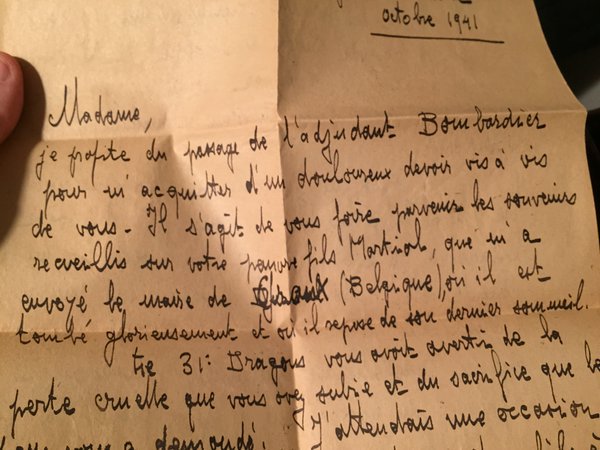 octobre 1941
Madame,
je profite du passage de l'adjudant Bombardier
pour m'acquitter d'un douloureux devoir vis à vis
de vous - Il s'agit de vous faire parvenir les souvenirs
recueillis sur votre pauvre fils Martial, que m'a
envoyé le maire de (Belgique), où il est
tombé glorieusement et où il repose de son dernier sommeil.
31e Dragons vous avait averti de la
perte cruelle que vous avez subie et du sacrifice que
J'attendais une occasion
vous a demandé.